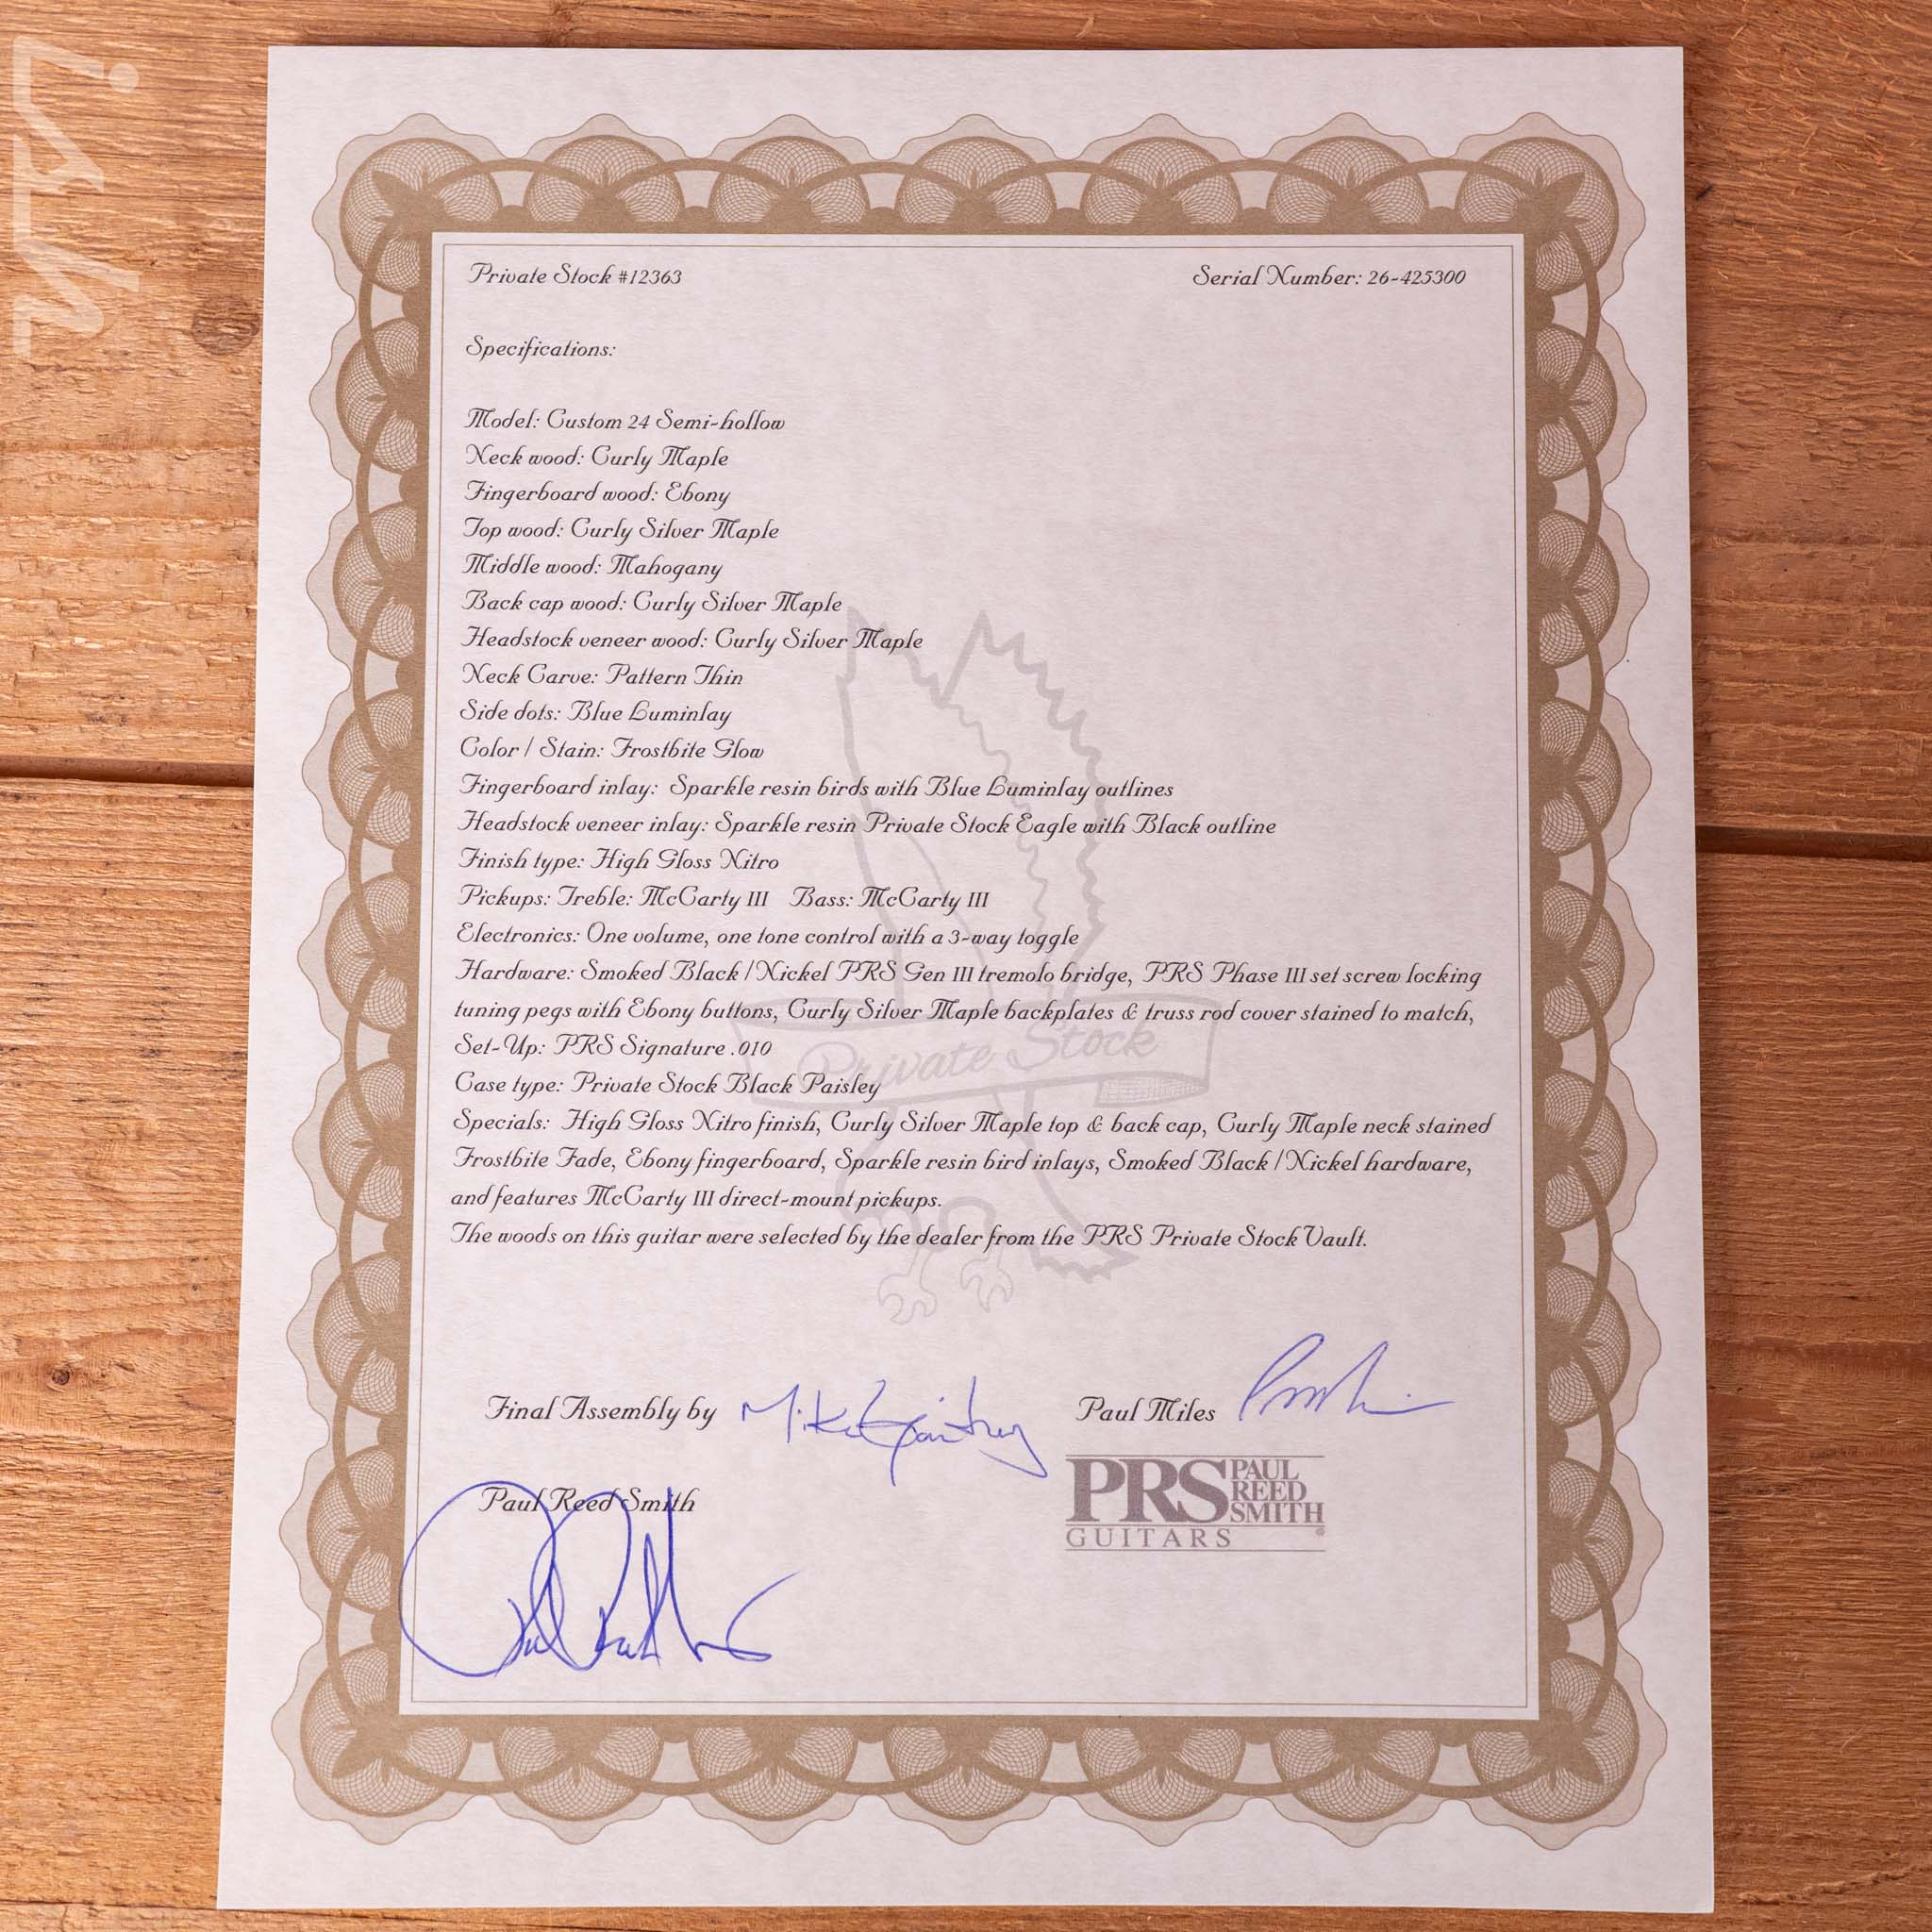 Private Stock #12363
Serial Number: 26-425300
Specifications:
Model: Custom 24 Semi-hollow
Neck wood: Curly Maple
Fingerboard wood: Ebony
Top wood: Curly Silver Maple
Middle wood: Mahogany
Back cap wood: Curly Silver Maple
Headstock veneer wood: Curly Silver Maple
Neck Carve: Pattern Thin
Side dots: Blue Luminlay
Color / Stain: Frostbite Glow
Fingerboard inlay: Sparkle resin birds with Blue Luminlay outlines
Headstock veneer inlay: Sparkle resin Private Stock Eagle with Black outline
Finish type: High Gloss Nitro
Pickups: Treble: McCarty III Bass: McCarty III
Electronics: One volume, one tone control with a 3-way toggle
Hardware: Smoked Black / Nickel PRS Gen III tremolo bridge, PRS Phase III set screw locking
tuning pegs with Ebony buttons, Curly Silver Maple backplates & truss rod cover stained to match,
Set-Up: PRS Signature .010
Private Stock
Case type: Private Stock Black Paisley
Specials: High Gloss Nitro finish, Curly Silver Maple top & back cap, Curly Maple neck stained
Frostbite Fade, Ebony fingerboard, Sparkle resin bird inlays, Smoked Black / Nickel hardware,
and features McCarty III direct-mount pickups.
The woods on this guitar were selected by the dealer from the PRS Private Stock Vault.
Final Assembly by Mike
Paul Miles
Paul Reed Smith
PRS PAUL REED SMITH
GUITARS